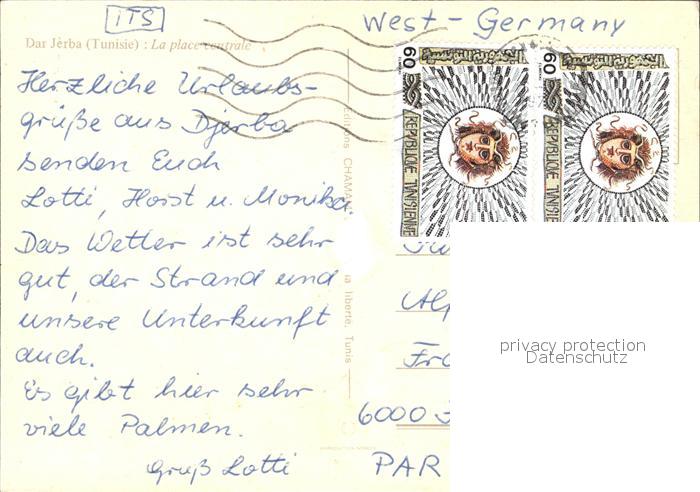 ITS
West-Germany
Dar Jèrba (Tunisie) : La place centrale
Herzliche Urlaubs-
grüße aus Djerba
senden Euch
Lotti, Horst u. Monika.
Das Wetter ist sehr
gut, der Strand und
unsere Unterkunft
auch.
Es gibt hier sehr
viele Palmen.
Gruß Lotti
Editions CHAMAM
la liberté, Tunis
60
REPVBLIQUE TUNISIENNE
الجمهورية التونسية
60
REPVBLIQUE TUNISIENNE
الجمهورية التونسية
Alp
6000
PAR
privacy protection
Datenschutz